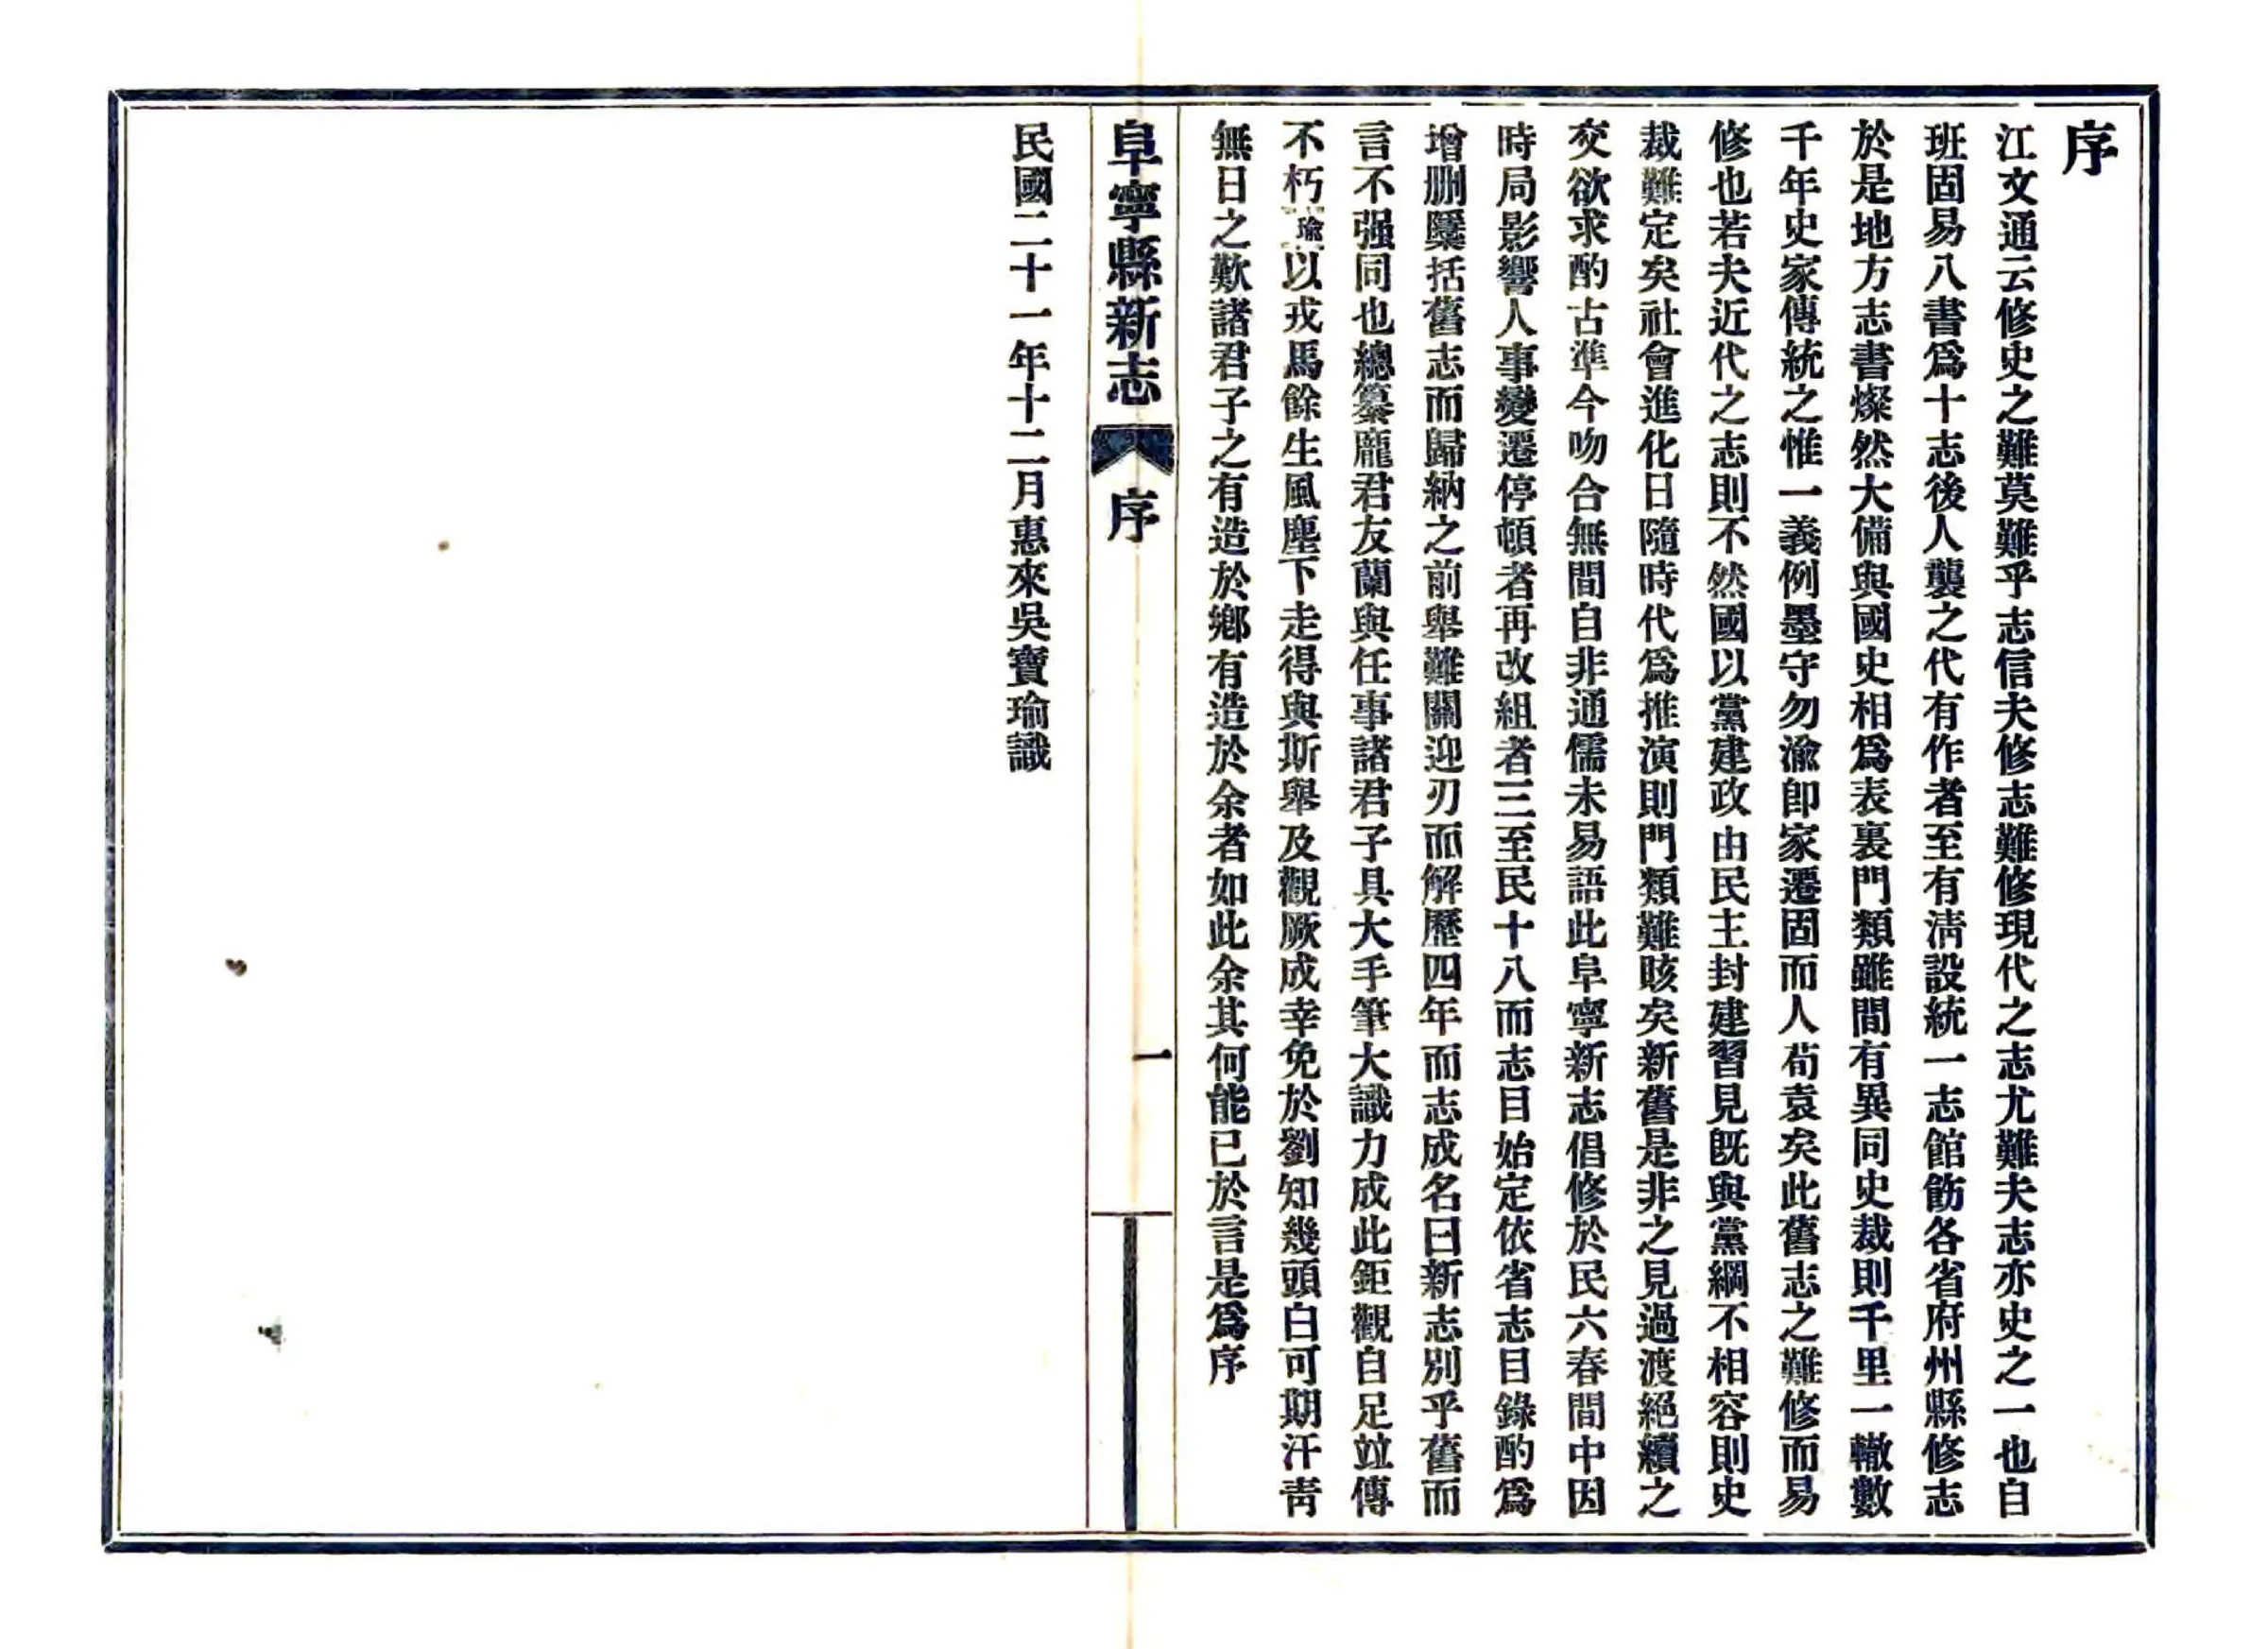 序
江文通云修史之難莫難乎志信夫修志難修現代之志尤難夫志亦史之一也自
班固易八書爲十志後人襲之代有作者至有淸設統一志館飭各省府州縣修志
於是地方志書燦然大備與國史相爲表裏門類雖間有異同史裁則千里一轍數
千年史家傳統之惟一義例墨守勿渝卽家遷固而人荀袁矣此舊志之難修而易
修也若夫近代之志則不然國以黨建政由民主封建習見旣與黨綱不相容則史
裁難定矣社會進化日隨時代爲推演則門類難賅矣新舊是非之見過渡絕續之
交欲求酌古準今吻合無間自非通儒未易語此阜寧新志倡修於民六春間中因
時局影響人事變遷停頓者再改組者三至民十八而志目始定依省志目錄酌爲
增删隱括舊志而歸納之前舉難關迎刃而解歷四年而志成名曰新志別乎舊而
言不强同也總纂龐君友蘭與任事諸君子具大手筆大識力成此鉅觀自足竝傳
不朽瑜以戎馬餘生風塵下走得與斯舉及觀厥成幸免於劉知幾頭白可期汗靑
無日之歎諸君子之有造於鄕有造於余者如此余其何能已於言是爲序
阜寧縣新志 序 一
民國二十一年十二月惠來吳寶瑜識